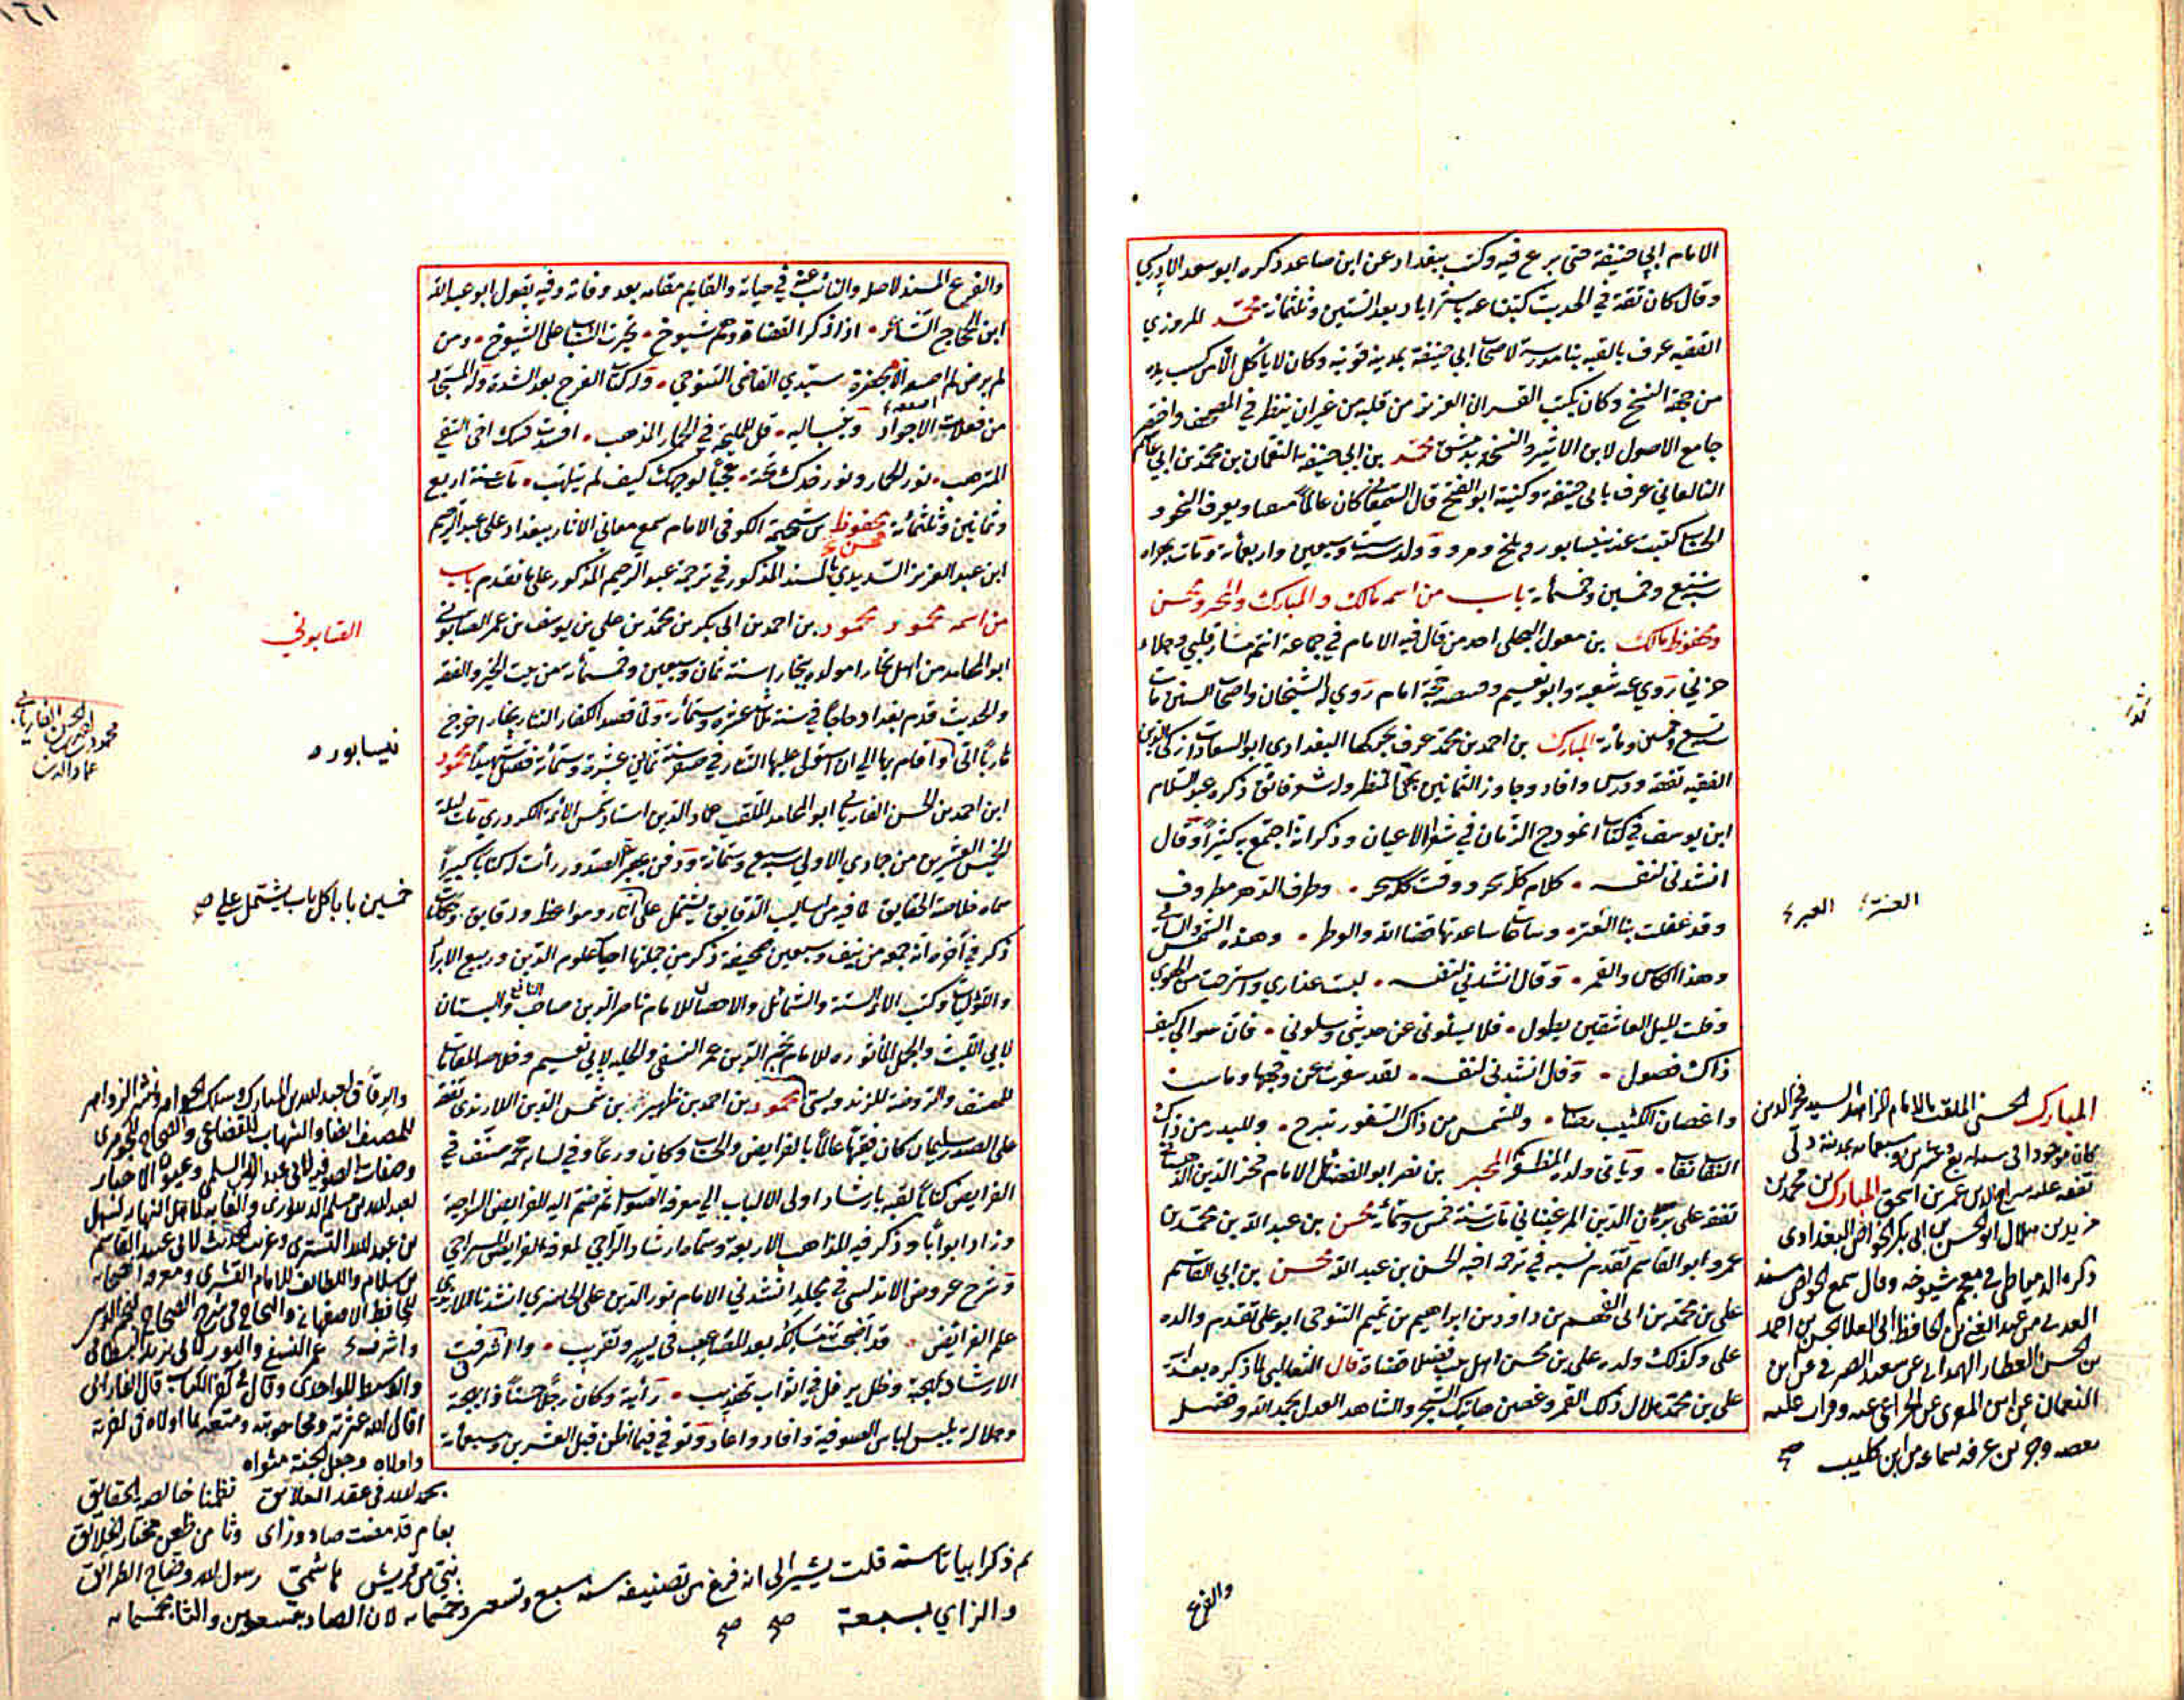 الامام ابي حنيفة حتى برع فيه وكتب ببغداد عن ابن صاعد ذكره ابو سعد الادريسي
وقال كان ثقة في الحديث كتبنا عنه باستراباد بعد الستين وثلثمائة محمد المروزي
الفقيه عرف بالقبه بنا مدرسة لاصحاب ابي حنيفة بمدينة قونيه وكان لا ياكل الا من كسب يده
من جهة النسخ وكان يكتب القران العزيز من قلبه من غير ان ينظر في المصحف واختصر
جامع الاصول لابن الاثير والنسخة بدمشق محمد بن ابي حنيفة النعمان بن محمد بن ابي عاصم
عرف بابي حنيفة وكنيته ابو الفتح قال السمعاني كان عالما ويعرف النحو و
الحساب كتبت عنه بنيسابور وبلخ ومرو وولد سنة ست وسبعين واربعمائة ومات بهراه
وخمسين وخمسمائة باب من اسمه مالك والمبارك والمجبر ومحسن
ومحفوظ مالك بن مغول البجلي احد من قال فيه الامام في جماعة انتم مسار قلبي وجلاء
حزني روى عنه شعبة وابو نعيم وقبيصة حجة امام روى له الشيخان واصحاب السنن مات
سنة تسع وخمسين ومائة المبارك بن احمد بن محمد عرف البغدادي ابو السعادات
الفقيه تفقه ودرس وافاد وجاوز الثمانين المنظر وله شعر فائق ذكره عبد السلام
ابن يوسف في كتاب انموذج الزمان في شعراء الاعيان وذكر انه اجتمع به كثيرا وقال
انشدني لنفسه • كلام كله سحر ووقت كله سحر • وطرف الدهر مطروف
وقد غفلت بنا الغيره • وساعات ساعدتها قضاء الله والوطر • وهذه الشمس
وهذا الكاس والقمر • وقال انشدني لنفسه • لبست عذاري واسترحت من الهوى
وقلت لليل العاشقين يطول • فلا يسئلوني عن حديثي وسلوني • فان سوالي كيف
ذاك فضول • وقال انشدني لنفسه • لقد سفرت عن وجهها وماست
واغصان الكثيب • وللشمس من ذاك السفور تبرج • وللبدر من ذاك
النقاب نقاب • وياتي ولده المظفر المجبر بن نصر ابو الفضائل الامام فخر الدين
تفقه على برهان الدين المرغيناني مات سنة خمس وستمائة محسن بن عبد الله بن محمد بن
عمرو ابو القاسم تقدم نسبه في ترجمة اخيه الحسن بن عبد الله محسن بن ابي القاسم
علي بن محمد بن ابي الفهم بن داود بن ابراهيم بن تميم التنوخي ابو علي تقدم والده
علي وكذلك ولده علي بن محسن اهل بيت فضلا قضاة قال الثعالبي لما ذكره بعد ابيه
علي بن محمد هلال ذلك القمر وغصن هاتيك الشجر والشاهد العدل بمجد ابيه وفضله
العنترة العبره
المبارك الحسني الملقب بالامام الزاهد السيد فخر الدين
كان موجودا في سنة بمدينة دلي
تفقه عليه سراج الدين عمر بن اسحق المبارك بن محمد بن
مزيد بن هلال ابو الحسن بن ابي بكر الخواص البغدادي
ذكره الدمياطي في معجم شيوخه وقال سمع الخواص مسند
العدني من عبد الغني بن الحافظ ابي العلا الحسن بن احمد
بن الحسن العطار الهمداني عن سعيد الصيرفي عن ابن
النعمان عن ابن المقرى عن الخزاعي عنه وقرات عليه
بعضه وجزء بن عرفه بسماعه من ابن كليب صح
والفرع
١٦١
والفرع المسند لاصله والنائب عنه في حياته والقايم مقامه بعد وفاته وفيه يقول ابو عبد الله
ابن الحجاج الشاعر • اذا ذكر القضاة وهم شيوخ • تخيرت الشباب على الشيوخ • ومن
لم يرض لم اصفعه الا بحضرة سيدي القاضي التنوخي • وله كتاب الفرج بعد الشدة وله المستجاد
من فعلات الاجواد وينسب اليه • قل للمليحة في الخمار المذهب • افسدت نسك اخي التقي
المترهب • نور الخمار ونور خدك تحته • عجبا لوجهك كيف لم يتلهب • مات سنة اربع
وثمانين وثلثمائة محفوظ بن شحمة الكوفي الامام سمع معاني الاثار ببغداد على عبد الرحيم
ابن عبد العزيز السديدي بالسند المذكور في ترجمة عبد الرحيم المذكور على ما تقدم باب
من اسمه محمود محمود بن احمد بن ابي بكر بن محمد بن علي بن يوسف بن عمر الصابوني
ابو المحامد من اهل بخارا مولده ببخارا سنة ثمان وسبعين وخمسمائة من بيت الخير والفقه
والحديث قدم بغداد حاجا في سنة ثلاث عشرة وستمائة ولما قصد الكفار التتار بخارا خرج
هاربا الى واقام بها الى ان استولى عليها التتار في صفر سنة ثماني عشرة وستمائة فقتل شهيدا محمود
ابن احمد بن الحسن الفاريابي ابو المحامد الملقب عماد الدين استاذ شمس الائمة الكردري مات ليلة
الخميس العشرين من جمادي الاولى سنة سبع وستمائة ودفن بمقبرة الصدور رايت له كتابا كبيرا
سماه خلاصة الحقايق لما فيه من اساليب الدقايق يشتمل على اثار ومواعظ ودقايق وحكايات
ذكر في اخره انه جمعه من نيف وسبعين صحيفة ذكر من جملتها احياء علوم الدين وربيع الابرار
وكتب الائمة الستة والشمائل للامام ناصر الدين صاحب النافع والبستان
لابي الليث والجمل الماثوره للامام نجم الدين عمر النسفي والحلية لابي نعيم وخلاصة المقامات
للمصنف والروضة للزندويستي محمود بن احمد بن ظهير بن شمس الدين اللارندي تفقه
على الصدر سليمان كان فقيها عالما بالفرايض والحساب وكان ورعا وفي لسانه عجمه صنف في
الفرايض كتابا لقبه بارشاد اولى الالباب الى معرفة الصواب ثم ضم اليه الفرايض السراجية
وزاد ابوابا وذكر فيه المذاهب الاربعة وسماه ارشاد الراجي لمعرفة الفرايض السراجي
وشرح عروض الاندلسي في مجلد انشدني الامام نور الدين علي الخاضري انشدنا اللارندي
علم الفرائض • قد اتضحت بعد المصاعب في يسير وتقريب • والاشرفت
الارشاد بهجة وظل يرفل في اثواب تهذيب • رايته وكان رجلا حسنا ذا بهجة
وجلالة يلبس لباس الصوفية وافاد واعاد وتوفي فيما اظن قبل العشرين وسبعمائة
الصابوني
نيسابور ه
محمود بن احمد بن الحسن الفاريابي
عماد الدين
خمسين بابا كل باب يشتمل على صح
والرقاق لعبد الله بن المبارك وسلك الجواهر ونشر الزواهر
للمصنف ايضا والشهاب للقضاعي والصحاح للجوهري
وصفات الصوفيه لابي عبد الرحمن السلمي وعيون الاخبار
لعبد الله بن مسلم الدينوري
بن عبد الله التستري وغريب الحديث لابي عبيد القاسم
بن سلام واللطائف للامام القشيري ومعرفة الصحابه
للحافظ الاصفهاني
والوسيط للواحدي وقال في اخر الكتاب قال الفاريابي
اقال الله عثرته ومحا حوبته ومتعه بما اولاه في غربته
واولاه وجعل الجنة مثواه
بحمد الله في عقد العلائق نظمنا خالصه الحقايق
بعام قد مضت صاد وزاى وثا من مختار الخلائق
نبي من قريش هاشمي رسول الله وضاح الطرائق
ثم ذكر ابياتا ستة قلت يشير الى انه فرغ من تصنيفه سنه سبع وتسعين وخمسمايه لان الصاد بتسعين والثا بخمسمايه
والزاي بسبعة صح صح